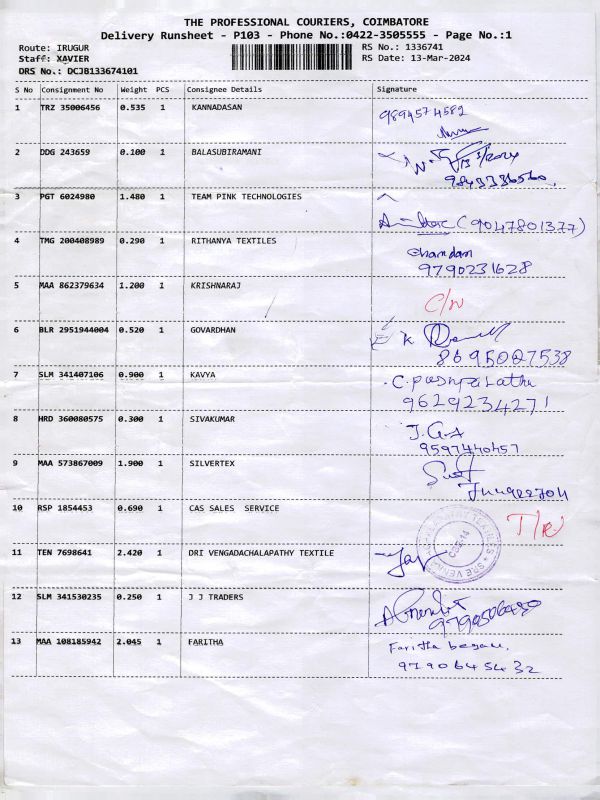 THE PROFESSIONAL COURIERS, COIMBATORE
Delivery Runsheet - P103 - Phone No.:0422-3505555 - Page No.:1
Route: IRUGUR
RS No.: 1336741
Staff: XAVIER
RS Date: 13-Mar-2024
DRS No.: DCJB133674101
S No Consignment No Weight PCS Consignee Details Signature
1 TRZ 35006456 0.535 1 KANNADASAN
9894574582
2 DDG 243659 0.100 1 BALASUBIRAMANI
9843336560
3 PGT 6024980 1.480 1 TEAM PINK TECHNOLOGIES
(9047801377)
4 TMG 200408989 0.290 1 RITHANYA TEXTILES
Chandan
9790231628
5 MAA 862379634 1.200 1 KRISHNARAJ
C/N
6 BLR 2951944004 0.520 1 GOVARDHAN
8695007538
7 SLM 341407106 0.900 1 KAVYA
C. Pushpalatha
9629234271
8 HRD 360080575 0.300 1 SIVAKUMAR
J.G.A
9597440457
9 MAA 573867009 1.900 1 SILVERTEX
10 RSP 1854453 0.690 1 CAS SALES SERVICE
11 TEN 7698641 2.420 1 DRI VENGADACHALAPATHY TEXTILE
12 SLM 341530235 0.250 1 J J TRADERS
13 MAA 108185942 2.045 1 FARITHA
Faritha begam.
9790645432